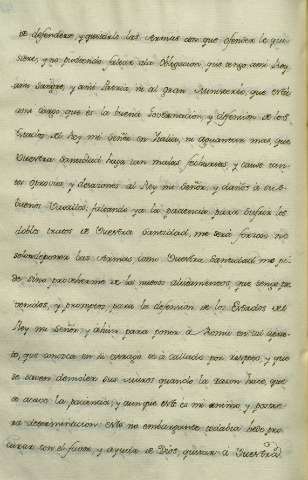 de defenderse, y quitarle las Armas con que ofender le qui-
siere, y no pudiendo faltar ala obligacion que tengo ami Rey,
ami Sangre, y ami Patria, ni al gran Ministerio, que está
ami cargo, que es la buena Governacion, y defension de los
Estados del Rey mi Señor en Italia, ni aguantar mas, que
Vuestra Santidad haga tan malas fechurias, y cause tan
tos oprovios, y desazones al Rey mi Señor, y daños à sus
buenos Vasallos, faltando ya la paciencia para sufrir los
doblas tratos de Vuestra Santidad, me será forzoso no
solo deponer las Armas, como Vuestra Santidad me pi-
de, sino proveherme de los nuevos alistamentos que tengo pre
venidos, y promptos, para la defension de los Estados del
Rey mi Señor, y aun para poner à Roma en tal aprie-
to, que conozca en su estrago se à callado por respeto, y que
se saven demoler sus muros quando la razon hace, que
se acave la paciencia, y aunque esta es mi animo, y postre
ra determinacion esto no embargante todabia hede pro-
curar con el favor, y ayuda de Dios, quitar à Vuestra